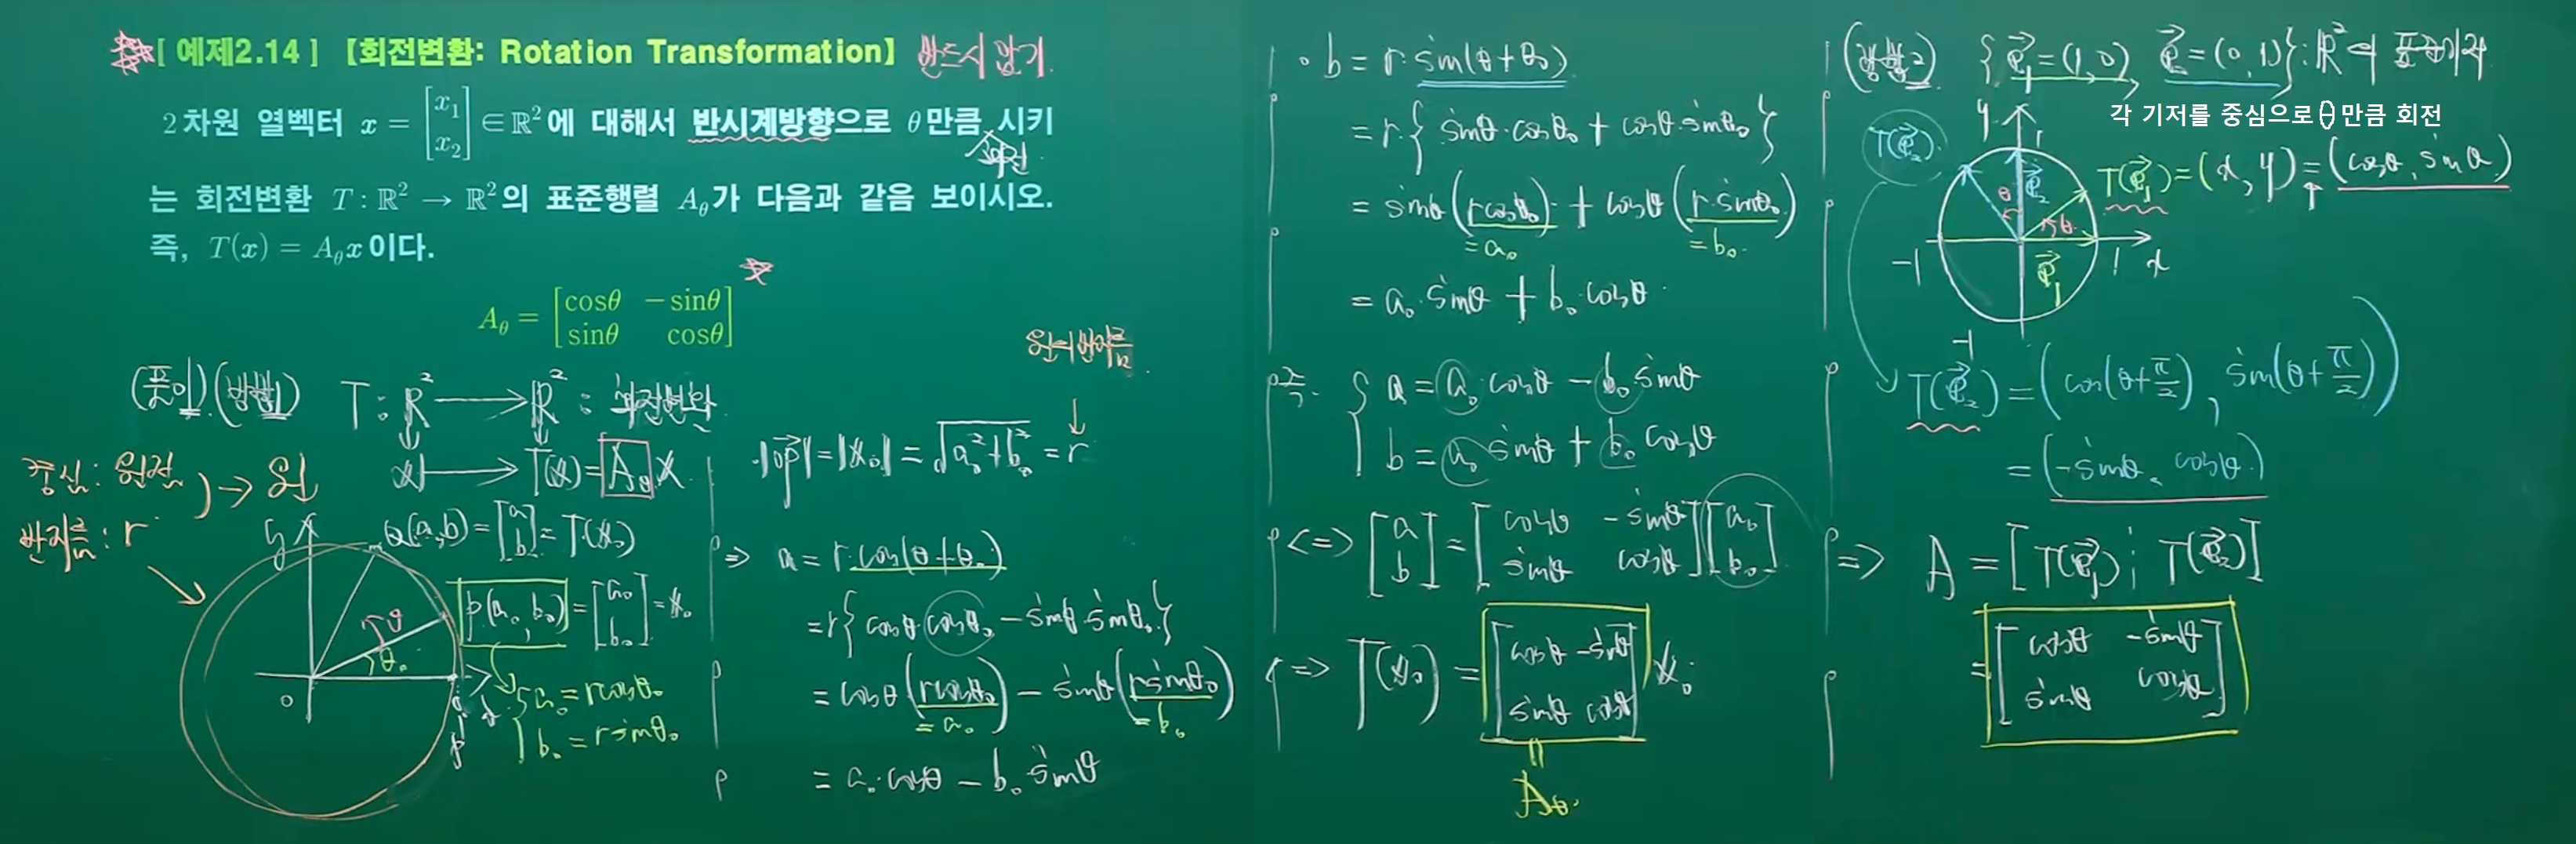 [ 예제2.14 ] 【회전변환: Rotation Transformation】 반드시 암기.
2차원 열벡터 x = [x₁ x₂] ∈ ℝ² 에 대해서 반시계방향으로 θ만큼 회전 시키
는 회전변환 T : ℝ² → ℝ²의 표준행렬 A_θ가 다음과 같음 보이시오.
즉, T(x) = A_θx이다.
A_θ = [cosθ −sinθ
sinθ cosθ]
(풀이) (방법1) T : ℝ² → ℝ² : 회전변환
x ↦ T(x) = A_θ x
중심 : 원점
반지름 : r
→ 원
y
Q(a, b) = [a b] = T(x₀)
P(a₀, b₀) = [a₀ b₀] = x₀
θ
θ₀
o
{ a₀ = r cosθ₀
b₀ = r sinθ₀
원의 반지름
↓
|OP| = |x₀| = √(a₀² + b₀²) = r
⇒ a = r·cos(θ+θ₀)
= r{cosθ·cosθ₀ − sinθ·sinθ₀}
= cosθ(r cosθ₀) − sinθ(r sinθ₀)
= a₀ = b₀
= a₀·cosθ − b₀·sinθ
• b = r·sin(θ+θ₀)
= r·{sinθ·cosθ₀ + cosθ·sinθ₀}
= sinθ(r cosθ₀) + cosθ(r·sinθ₀)
= a₀ = b₀
= a₀·sinθ + b₀·cosθ
즉. { a = a₀·cosθ − b₀·sinθ
b = a₀ sinθ + b₀ cosθ
<=> [a b] = [cosθ −sinθ
sinθ cosθ] [a₀ b₀]
<=> T(x₀) = [cosθ −sinθ
sinθ cosθ] x₀
A_θ
(방법2) {e₁ = (1, 0) e₂ = (0, 1)} : ℝ²의 표준기저
각 기저를 중심으로 θ만큼 회전
T(e₂)
y
1
T(e₁) = (x, y) = (cosθ, sinθ)
θ e₂
θ
−1 e₁ 1 x
−1
T(e₂) = (cos(θ+π/2), sin(θ+π/2))
= (−sinθ, cosθ)
=> A = [T(e₁) ⋮ T(e₂)]
= [cosθ −sinθ
sinθ cosθ]